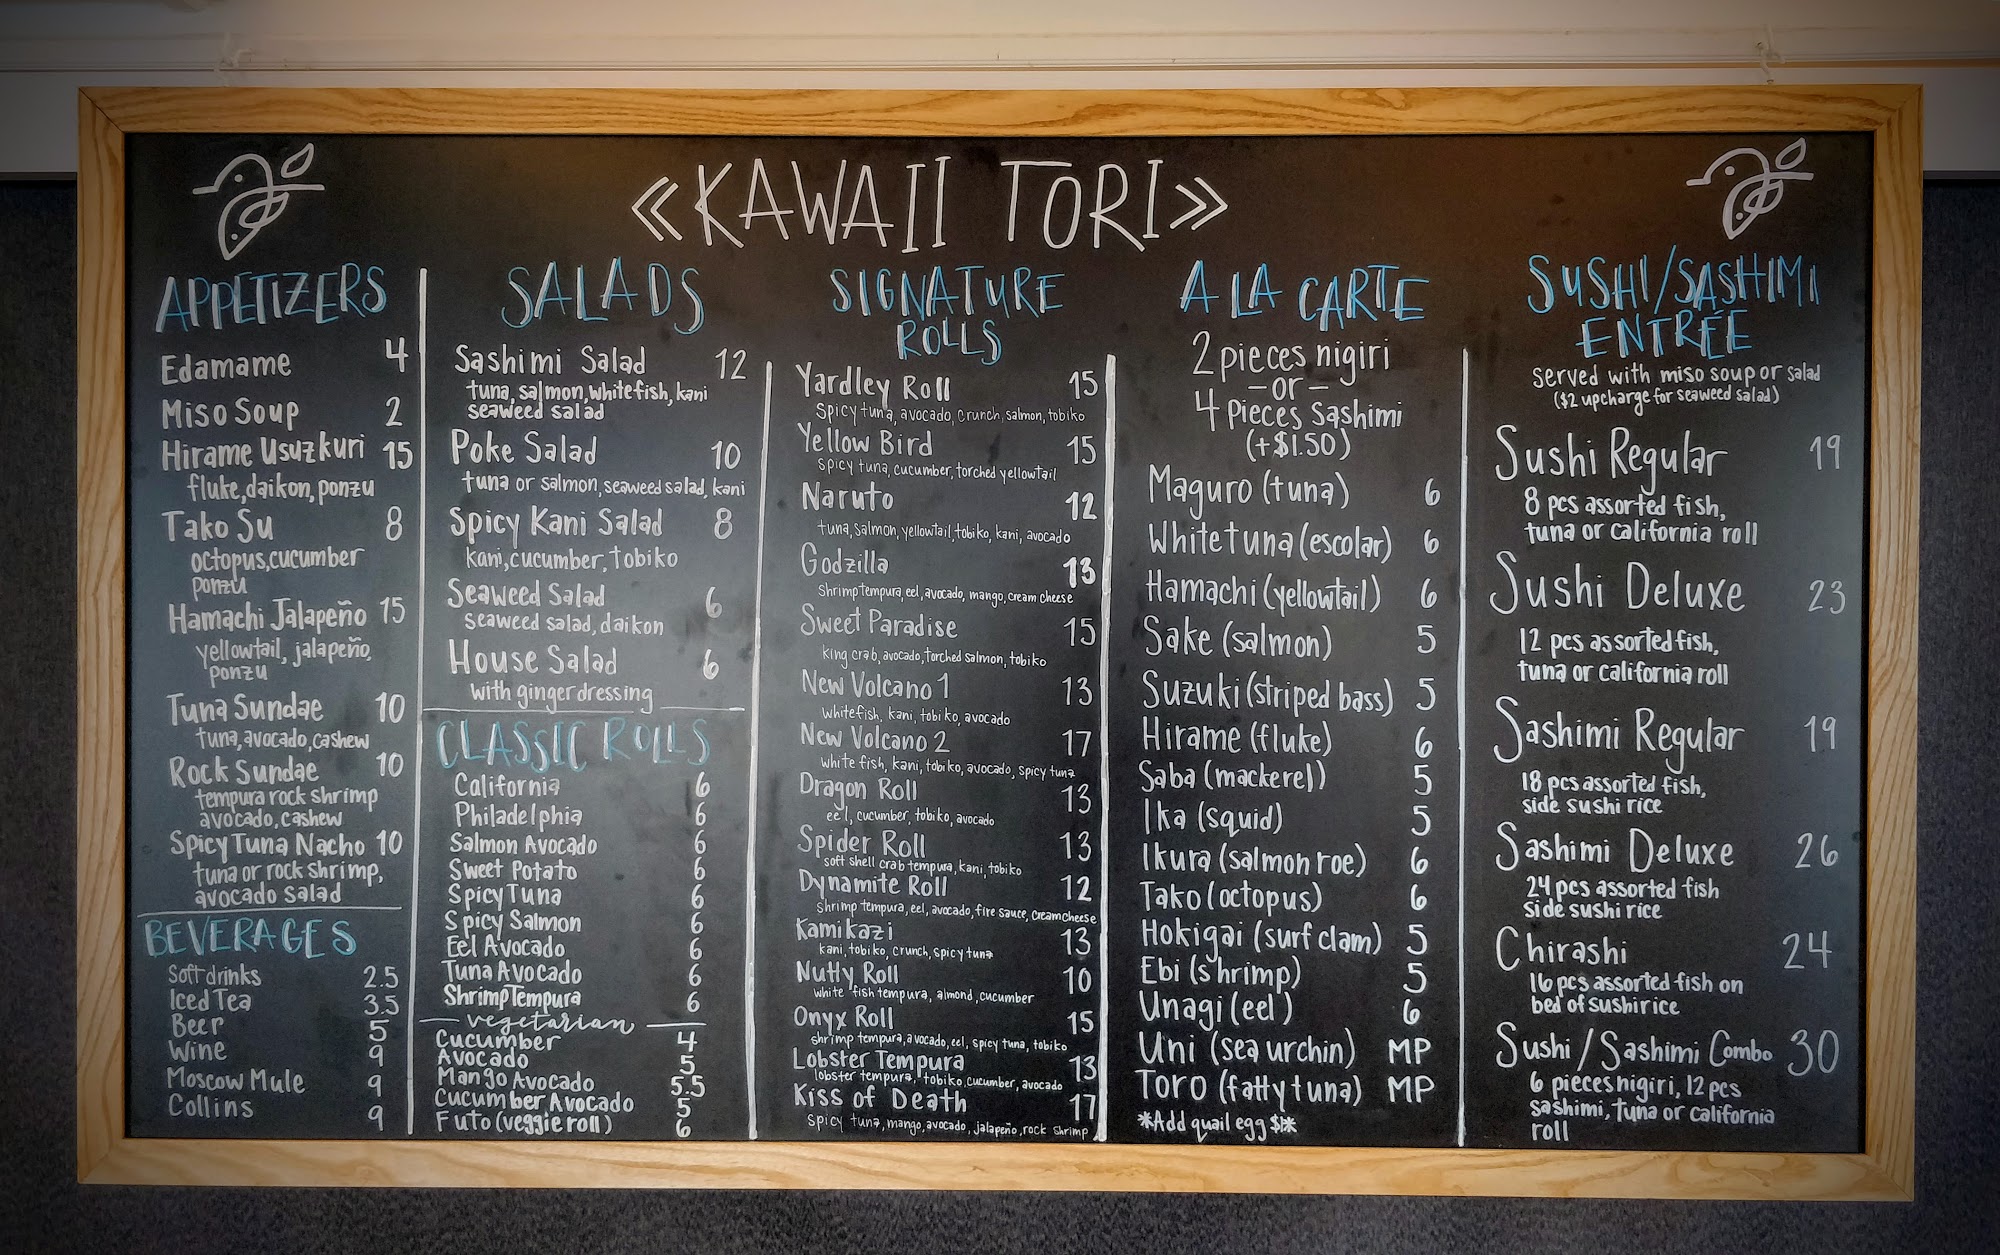 «KAWAII TORI»
APPETIZERS
Edamame 4
Miso Soup 2
Hirame Usuzkuri 15
fluke, daikon, ponzu
Tako Su 8
octopus, cucumber
ponzu
Hamachi Jalapeño 15
yellowtail, jalapeño,
ponzu
Tuna Sundae 10
tuna, avocado, cashew
Rock Sundae 10
tempura rock shrimp
avocado, cashew
Spicy Tuna Nacho 10
tuna or rock shrimp,
avocado salad
BEVERAGES
Soft drinks 2.5
Iced Tea 3.5
Beer 5
Wine 9
Moscow Mule 9
Collins 9
SALADS
Sashimi Salad 12
tuna, salmon, whitefish, kani
seaweed salad
Poke Salad 10
tuna or salmon, seaweed salad, kani
Spicy Kani Salad 8
kani, cucumber, tobiko
Seaweed Salad 6
seaweed salad, daikon
House Salad 6
with ginger dressing
CLASSIC ROLLS
California 6
Philadelphia 6
Salmon Avocado 6
Sweet Potato 6
Spicy Tuna 6
Spicy Salmon 6
Eel Avocado 6
Tuna Avocado 6
Shrimp Tempura 6
vegetarian
Cucumber 4
Avocado 5
Mango Avocado 5.5
Cucumber Avocado 5
Futo (veggie roll) 6
SIGNATURE
ROLLS
Yardley Roll 15
Spicy tuna, avocado, crunch, salmon, tobiko
Yellow Bird 15
spicy tuna, cucumber, torched yellowtail
Naruto 12
tuna, salmon, yellowtail, tobiko, kani, avocado
Godzilla 13
Shrimp tempura, eel, avocado, mango, cream cheese
Sweet Paradise 15
King crab, avocado, torched salmon, tobiko
New Volcano 1 13
whitefish, kani, tobiko, avocado
New Volcano 2 17
white fish, kani, tobiko, avocado, spicy tuna
Dragon Roll 13
eel, cucumber, tobiko, avocado
Spider Roll 13
soft shell crab tempura, kani, tobiko
Dynamite Roll 12
shrimp tempura, eel, avocado, fire sauce, cream cheese
Kamikazi 13
kani, tobiko, crunch, spicy tuna
Nutty Roll 10
white fish tempura, almond, cucumber
Onyx Roll 15
shrimp tempura, avocado, eel, spicy tuna, tobiko
Lobster Tempura 13
lobster tempura, tobiko, cucumber, avocado
Kiss of Death 17
spicy tuna, mango, avocado, jalapeño, rock shrimp
A LA CARTE
2 pieces nigiri
-or-
4 pieces sashimi
(+$1.50)
Maguro (tuna) 6
White tuna (escolar) 6
Hamachi (yellowtail) 6
Sake (salmon) 5
Suzuki (striped bass) 5
Hirame (fluke) 6
Saba (mackerel) 5
Ika (squid) 5
Ikura (salmon roe) 6
Tako (octopus) 6
Hokigai (surf clam) 5
Ebi (shrimp) 5
Unagi (eel) 6
Uni (sea urchin) MP
Toro (fatty tuna) MP
*Add quail egg $1*
SUSHI/SASHIMI
ENTRÉE
served with miso soup or salad
($2 upcharge for seaweed salad)
Sushi Regular 19
8 pcs assorted fish,
tuna or california roll
Sushi Deluxe 23
12 pcs assorted fish,
tuna or california roll
Sashimi Regular 19
18 pcs assorted fish,
side sushi rice
Sashimi Deluxe 26
24 pcs assorted fish
side sushi rice
Chirashi 24
16 pcs assorted fish on
bed of sushi rice
Sushi/Sashimi Combo 30
6 pieces nigiri, 12 pcs
sashimi, tuna or california
roll